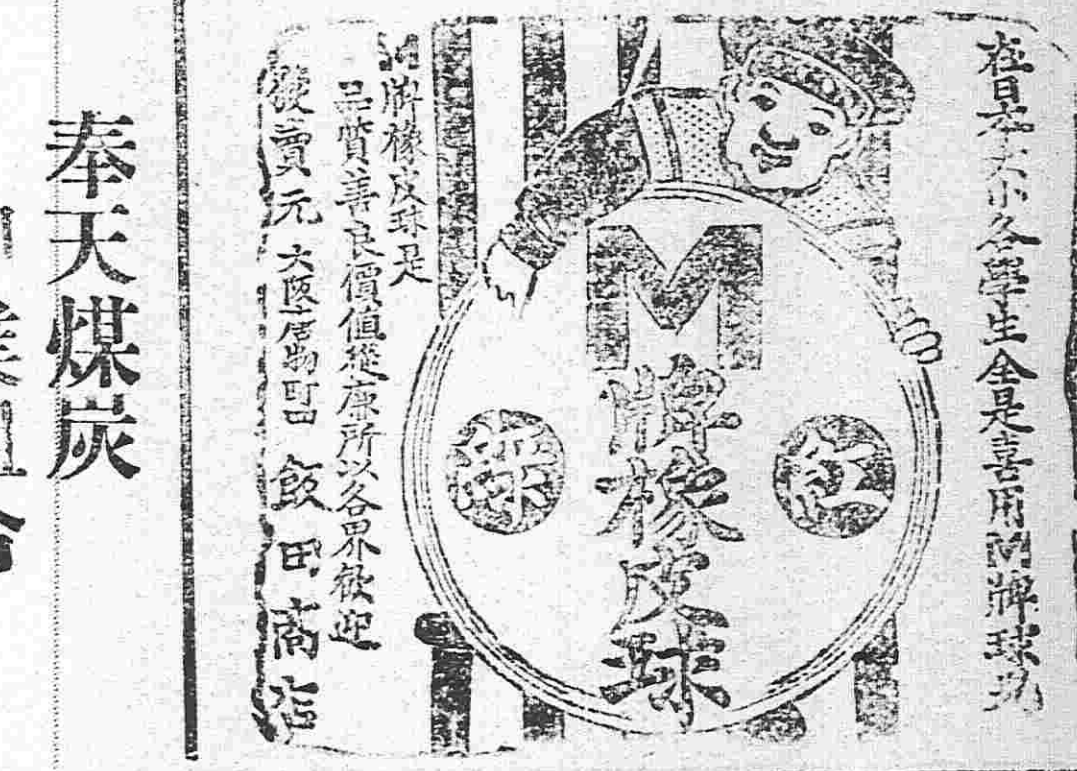 在日本大小各學生全是喜用M牌球玩
M
牌橡皮球
紅
綠
M牌橡皮球是
品質善良價值從廉所以各界歡迎
發賣元 大阪唐物町四 飯田商店
奉天煤炭